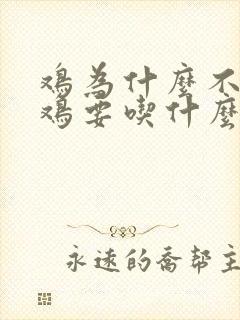 鸡為什麼不
鸡要喫什麼
永遠的喬帮主